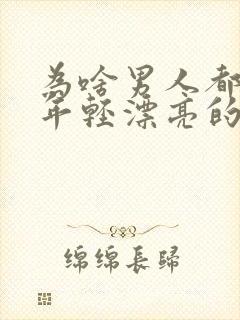 為啥男人都
年輕漂亮的
绵绵長歸